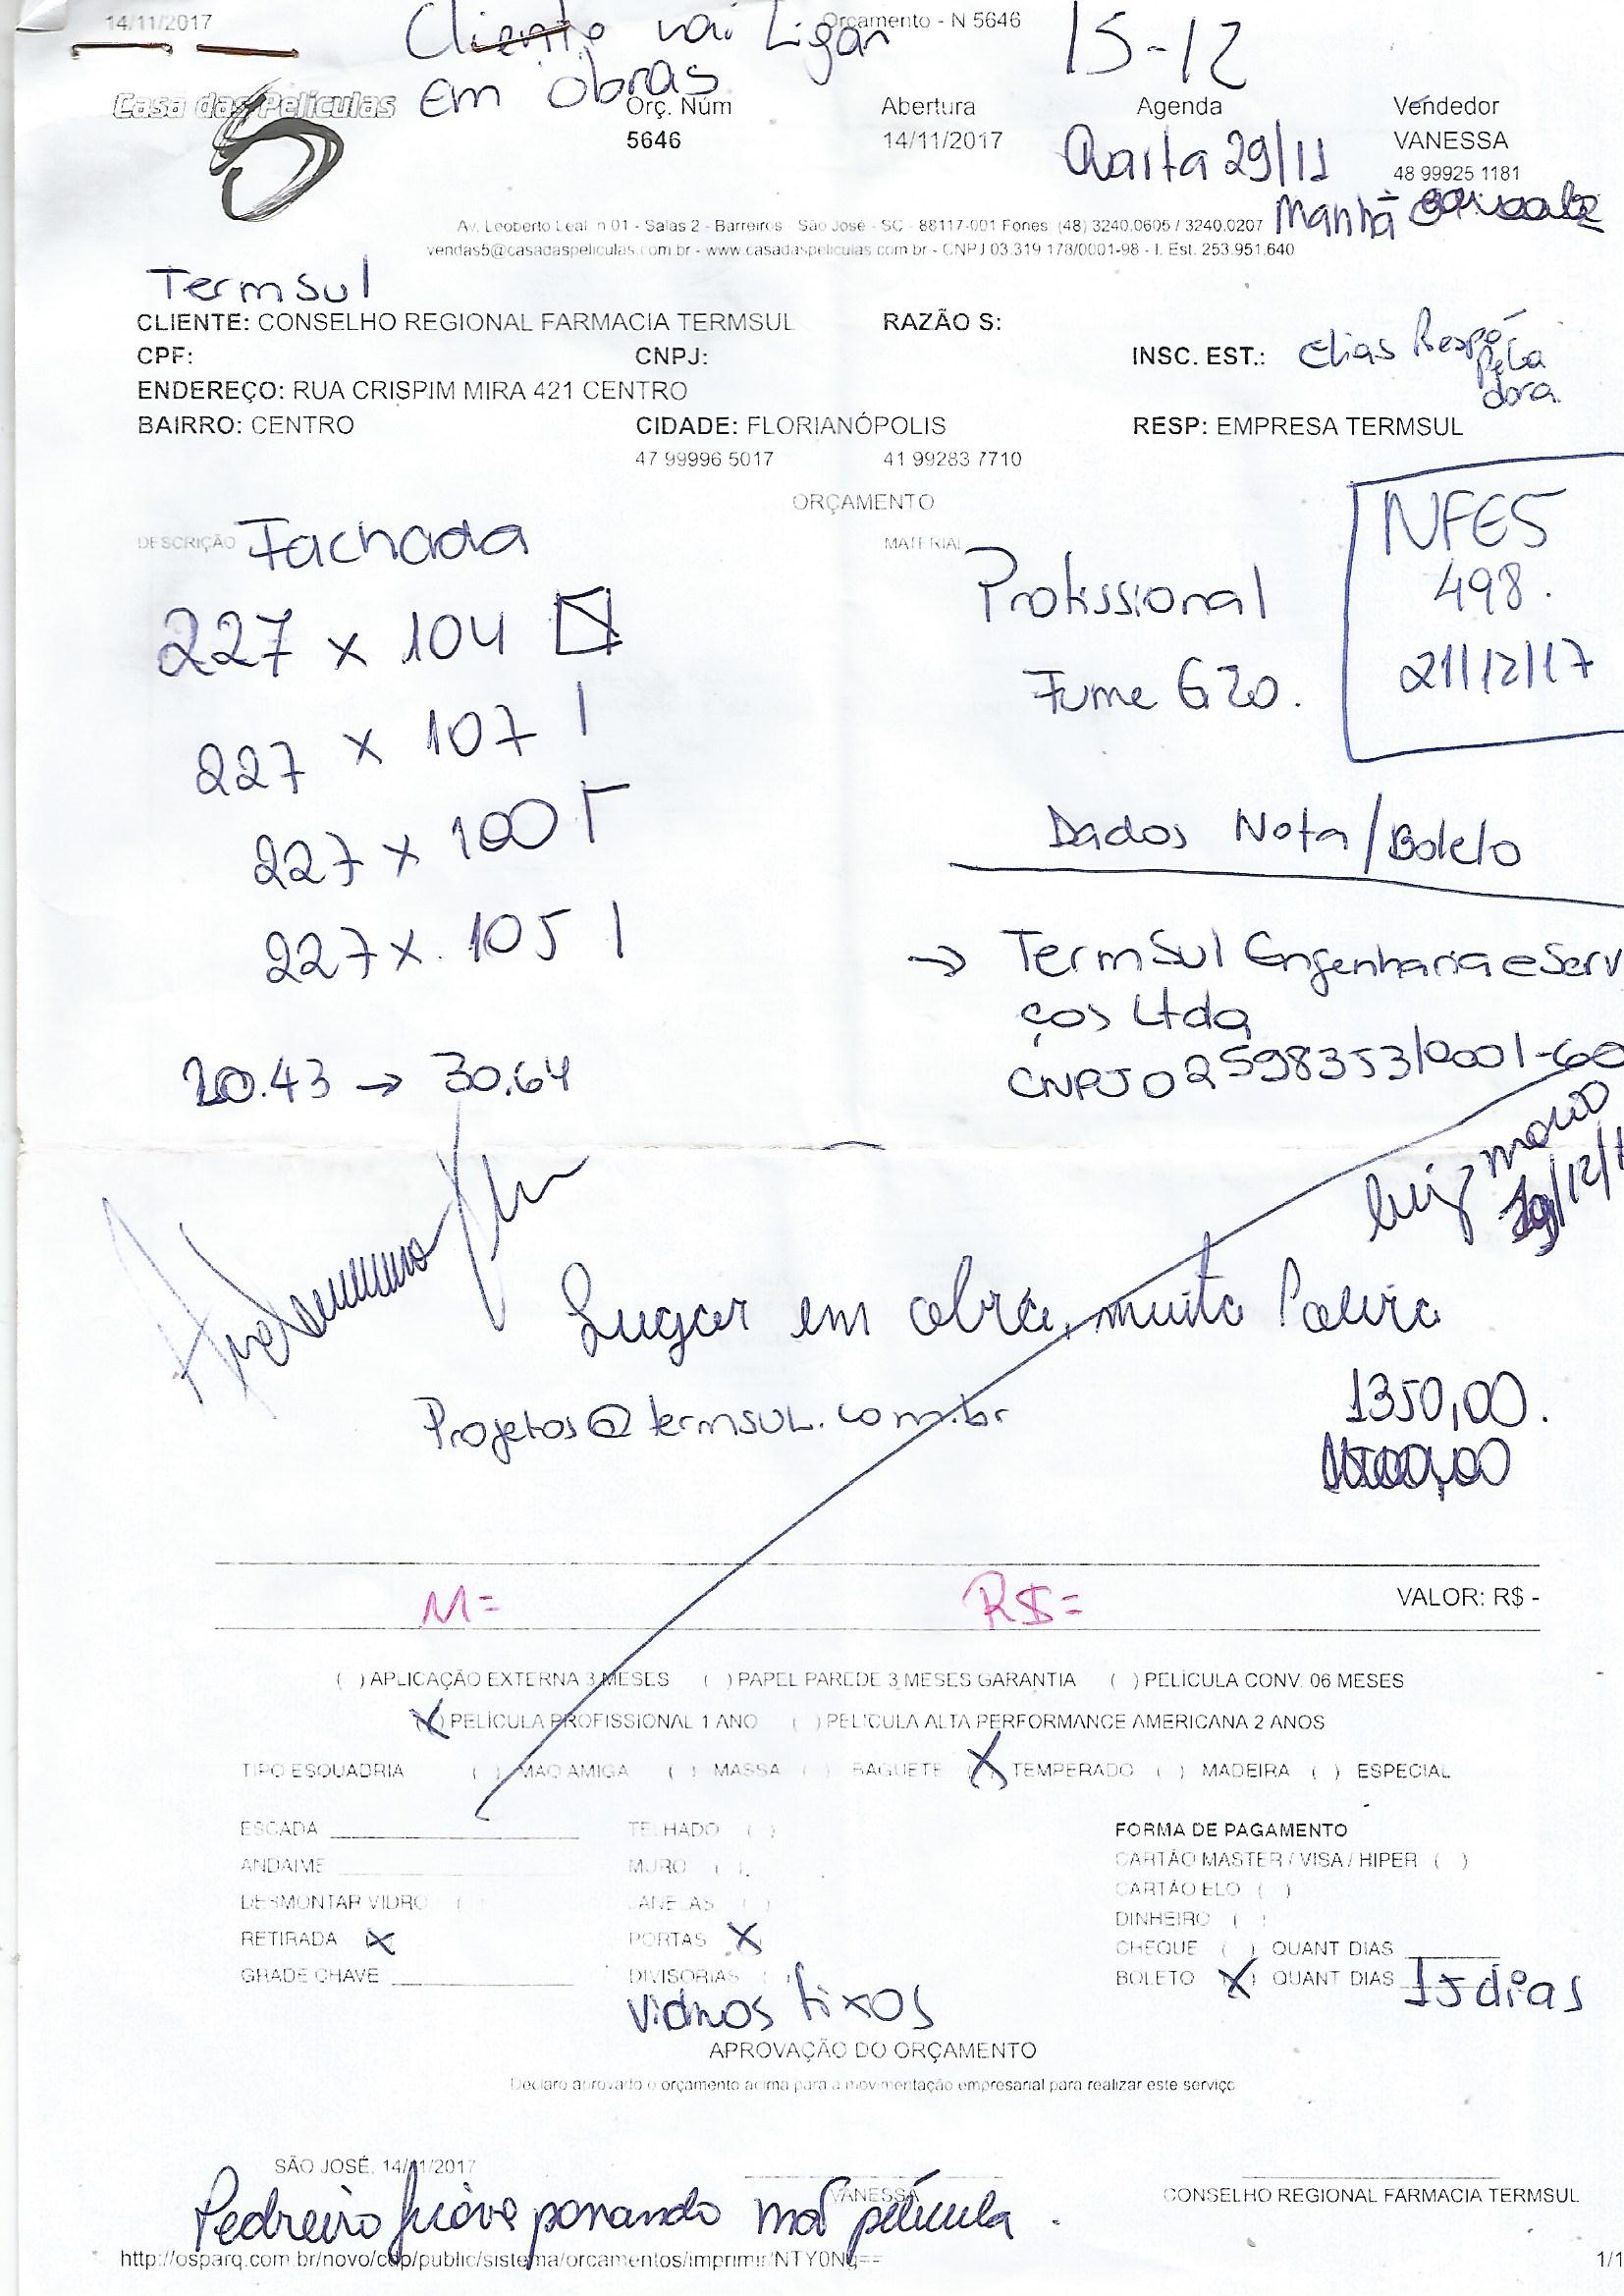 14/11/2017
Orçamento - N 5646
Cliente vai Ligar
15-12
Em obras
Casa das Películas
Orç. Núm
Abertura
Agenda
Vendedor
5646
14/11/2017
Quarta 29/11
VANESSA
48 99925 1181
Manhã
Av. Leoberto Leal n 01 - Salas 2 - Barreiros - São José - SC - 88117-001 Fones (48) 3240.0605 / 3240.0207
vendas5@casadaspeliculas.com.br - www.casadaspeliculas.com.br - CNPJ 03.319.178/0001-98 - I. Est. 253.951.640
TermSul
CLIENTE: CONSELHO REGIONAL FARMACIA TERMSUL
RAZÃO S:
CPF:
CNPJ:
INSC. EST.:
Elias Respo
pela
dora.
ENDEREÇO: RUA CRISPIM MIRA 421 CENTRO
BAIRRO: CENTRO
CIDADE: FLORIANÓPOLIS
RESP: EMPRESA TERMSUL
47 99996 5017
41 99283 7710
ORÇAMENTO
DESCRIÇÃO
Fachada
MATERIAL
NFES
498.
21/12/17
Profissional
Fume G20.
227 x 104
227 x 107
227 x 100
227 x. 105
Dados Nota/Boleto
→ TermSul Engenharia e Serv
ços Ltda
CNPJ 02598353/0001-60
20.43 → 30.64
luiz
Lugar em obra, muita Poeira
Projetos@termsul.com.br
1350,00.
M=
R$=
VALOR: R$ -
( ) APLICAÇÃO EXTERNA 3 MESES ( ) PAPEL PAREDE 3 MESES GARANTIA ( ) PELÍCULA CONV. 06 MESES
(X) PELÍCULA PROFISSIONAL 1 ANO ( ) PELICULA ALTA PERFORMANCE AMERICANA 2 ANOS
TIPO ESQUADRIA ( ) MÃO AMIGA ( ) MASSA ( ) BAGUETE (X) TEMPERADO ( ) MADEIRA ( ) ESPECIAL
ESCADA
TELHADO ( )
FORMA DE PAGAMENTO
ANDAIME
MURO ( )
CARTÃO MASTER / VISA / HIPER ( )
DESMONTAR VIDRO ( )
JANELAS ( )
CARTÃO ELO ( )
DINHEIRO ( )
RETIRADA (X)
PORTAS (X)
CHEQUE ( ) QUANT DIAS
GRADE CHAVE
DIVISORIAS ( )
BOLETO (X) QUANT DIAS 15 dias
Vidros fixos
APROVAÇÃO DO ORÇAMENTO
Declaro aprovado o orçamento acima para a movimentação empresarial para realizar este serviço
SÃO JOSÉ, 14/11/2017
VANESSA
CONSELHO REGIONAL FARMACIA TERMSUL
Pedreiro película.
http://osparq.com.br/novo/cdp/public/sistema/orcamentos/imprimir/NTY0Ng==
1/1